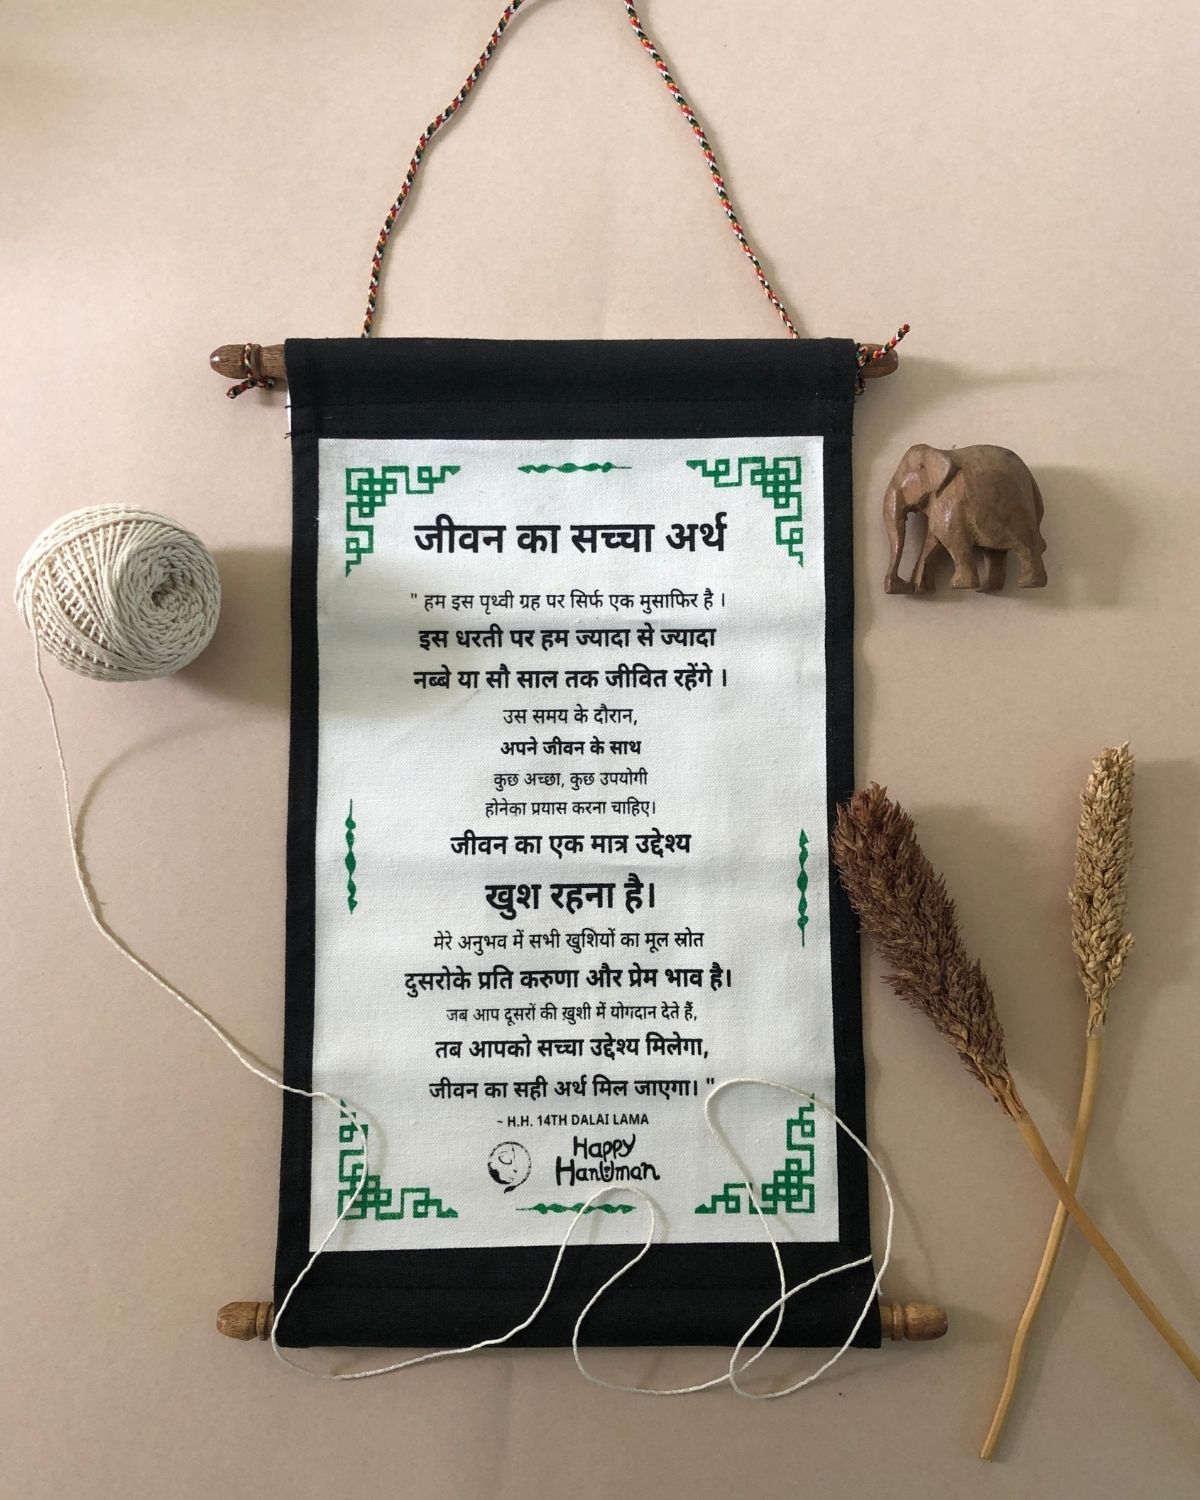 जीवन का सच्चा अर्थ
" हम इस पृथ्वी ग्रह पर सिर्फ एक मुसाफिर है ।
इस धरती पर हम ज्यादा से ज्यादा
नब्बे या सौ साल तक जीवित रहेंगे ।
उस समय के दौरान,
अपने जीवन के साथ
कुछ अच्छा, कुछ उपयोगी
होनेका प्रयास करना चाहिए।
जीवन का एक मात्र उद्देश्य
खुश रहना है।
मेरे अनुभव में सभी खुशियों का मूल स्रोत
दुसरोके प्रति करुणा और प्रेम भाव है।
जब आप दूसरों की ख़ुशी में योगदान देते हैं,
तब आपको सच्चा उद्देश्य मिलेगा,
जीवन का सही अर्थ मिल जाएगा। "
~ H.H. 14TH DALAI LAMA
Happy
Hanuman